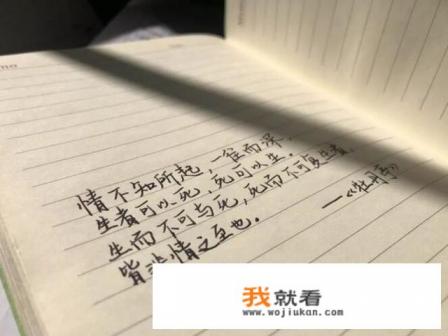 情不知所起,一往而深,
生者可以死,死可以生。
生而不可与死,死而不可复生者,
皆非情之至也。
——《牡丹亭》
我就看
www.wojiukan.com